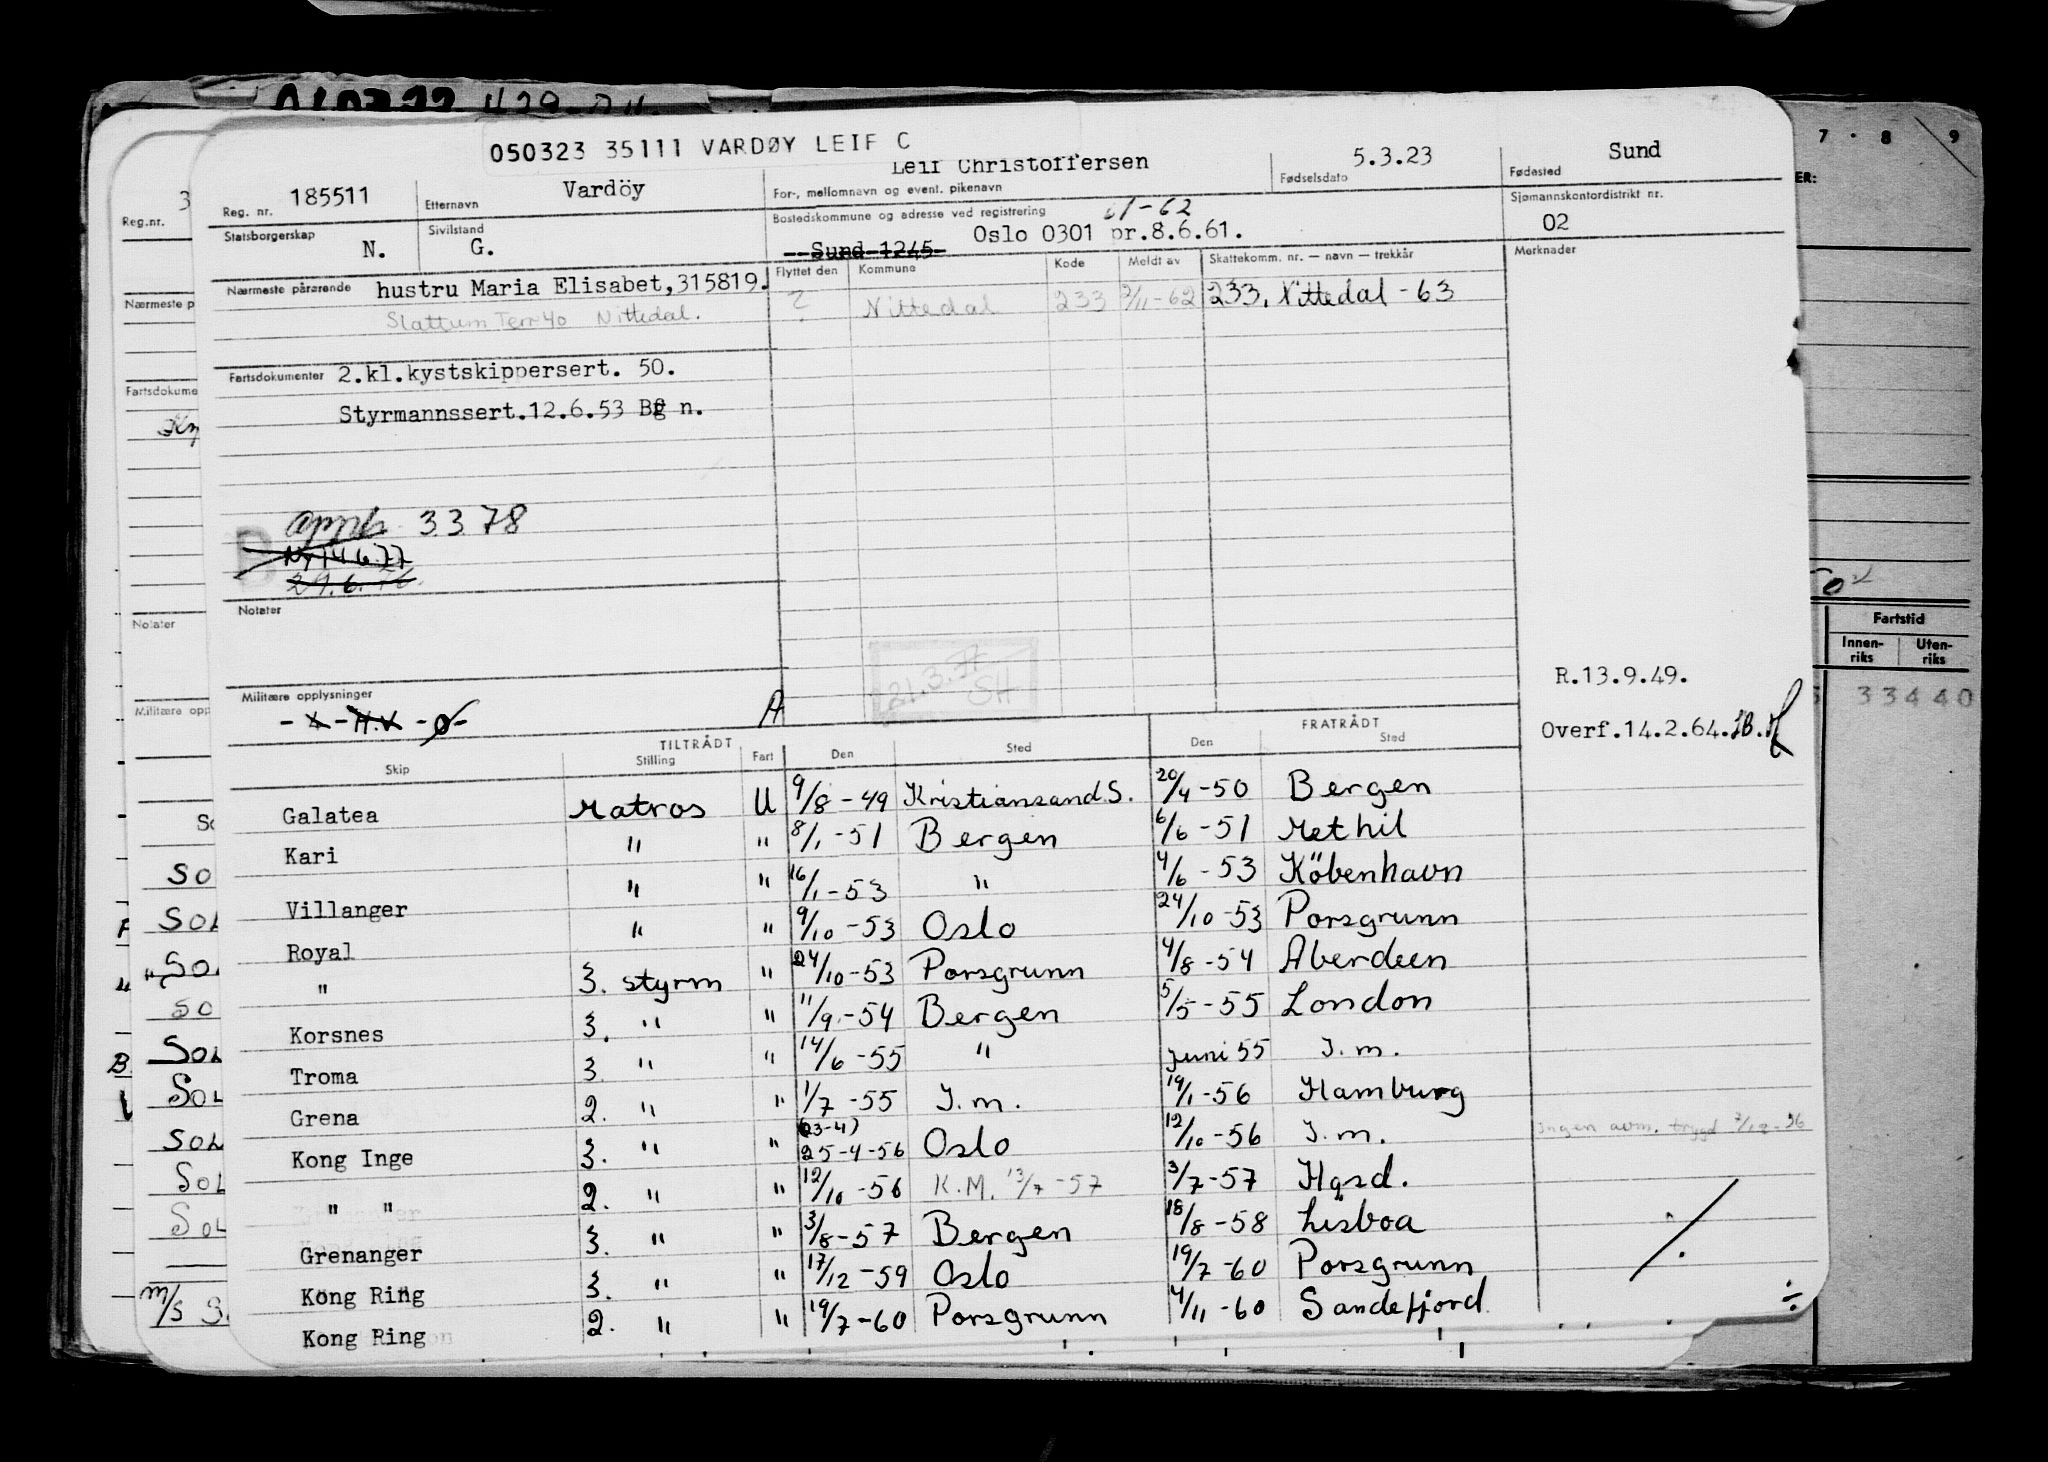 050323 35111 VARDØY LEIF C
Reg. nr. 185511 Etternavn Vardöy
Leif Christoffersen
For-, mellomnavn og event. pikenavn
5.3.23 Fødselsdato
Sund Fødested
Statsborgerskap N.
Sivilstand G.
Bostedskommune og adresse ved registrering
Sund 1245 Oslo 0301 pr.8.6.61.
Sjømannskontordistrikt nr. 02
Nærmeste pårørende hustru Maria Elisabet,315819.
Slattum Terr 40 Nittedal.
Flyttet den Kommune Kode Meldt av Skattekomm. nr. — navn — trekkår Merknader
? Nittedal 233 2/11-62 233, Nittedal - 63
Fartsdokumenter 2.kl.kystskippersert. 50.
Styrmannssert.12.6.53 Bg n.
3 3 78
Ny 14 6.77
29.6.76
Notater
21.3.77
SH
Militære opplysninger
A
R.13.9.49.
Overf.14.2.64.
TILTRÅDT FRATRÅDT
Skip Stilling Fart Den Sted Den Sted
Galatea Matros U 9/8-49 Kristiansand S. 20/4-50 Bergen
Kari " " 8/1-51 Bergen 6/6-51 Methil
Villanger " " 16/1-53 " 4/6-53 Köbenhavn
Royal " " 9/10-53 Oslo 24/10-53 Porsgrunn
" 3. styrm " 24/10-53 Porsgrunn 4/8-54 Aberdeen
Korsnes 3. " " 11/9-54 Bergen 5/5-55 London
Troma 3. " " 14/6-55 " juni 55 I.m.
Grena 2. " " 1/7-55 I.m. 19/1-56 Hamburg
(23-4)
Kong Inge 3. " " 25-4-56 Oslo 12/10-56 I.m. Ingen avm. trygd 7/12-56
" " 2. " " 12/10-56 K.M. 13/7-57 3/7-57 Hgsd.
Grenanger 3. " " 3/8-57 Bergen 18/8-58 Lisboa
Kong Ring 3. " " 17/12-59 Oslo 19/7-60 Porsgrunn
Kong Ring 2. " " 19/7-60 Porsgrunn 4/11-60 Sandefjord
Reg.nr. 3
Nærmeste p
Fartsdokume
Notater
Militære opp
So
SOL
SOL
SOL
SOL
m/s S
7 · 8 9
ER:
Fartstid
Innenriks Utenriks
33440